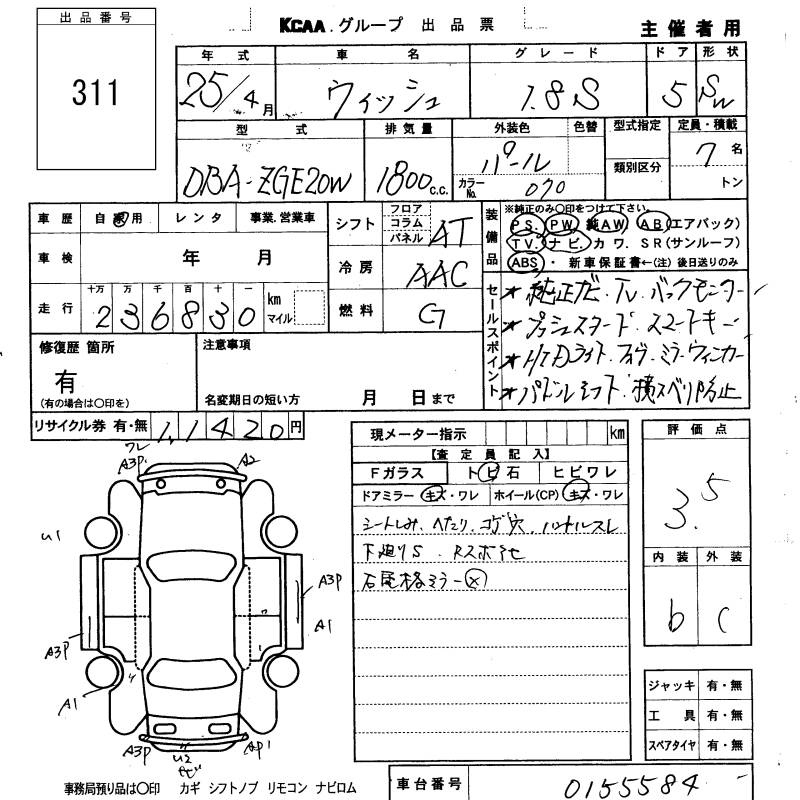 出品番号
311
KCAA.グループ 出品票
主催者用
年式 車名 グレード ドア 形状
25/4月 ウィッシュ 1.8S 5 SW
型式 排気量 外装色 色替 型式指定 定員・積載
DBA-ZGE20W 1800c.c. パール 7名
カラーNo. 070 類別区分 トン
車歴 自家用 レンタ 事業.営業車
シフト フロア コラム パネル AT
車検 年 月
冷房 AAC
走行 十万 万 千 百 十 一
236830 km マイル
燃料 G
装備品 ※純正のみ〇印をつけて下さい。
PS. PW 純AW AB(エアバック)
TV. ナビ. カワ. SR(サンルーフ)
ABS ・ 新車保証書←(注)後日送りのみ
セールスポイント
★純正ナビ.TV.バックモニター
★プッシュスタート.スマートキー
★HIDライト.フォグ.ミラーウィンカー
★パドルシフト.横スベリ防止
修復歴 箇所
有
(有の場合は〇印を)
注意事項
名変期日の短い方 月 日まで
リサイクル券 有・無 11420円
現メーター指示 km
【査定員記入】
Fガラス トビ石 ヒビワレ
ドアミラー キズ・ワレ ホイール(CP) キズ・ワレ
シートしみ、ヘタリ.コゲ穴.ハンドルスレ
下廻りS.
ミラー
評価点
3.5
内装 外装
b C
ワレ
A3P. A2
U1
A3P
A1
A3P
A1
A3P U2 AP1
ジャッキ 有・無
工具 有・無
スペアタイヤ 有・無
事務局預り品は〇印 カギ シフトノブ リモコン ナビロム
車台番号 0155584